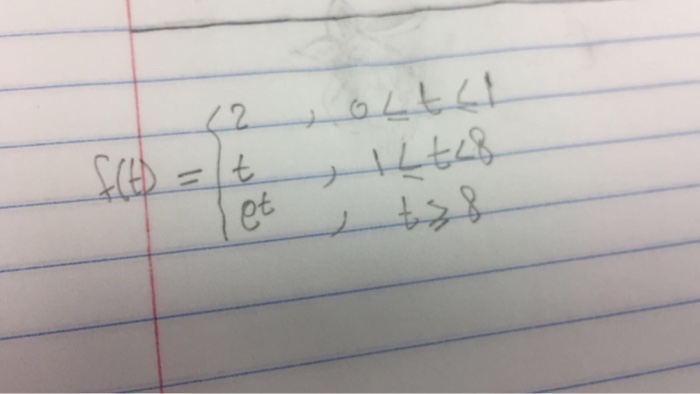 f(t) = { 2 , 0 ≤ t ≤ 1
t , 1 ≤ t < 8
et , t ≥ 8